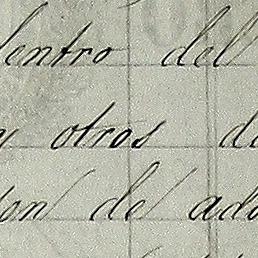 dentro del
y otros de
on de ado